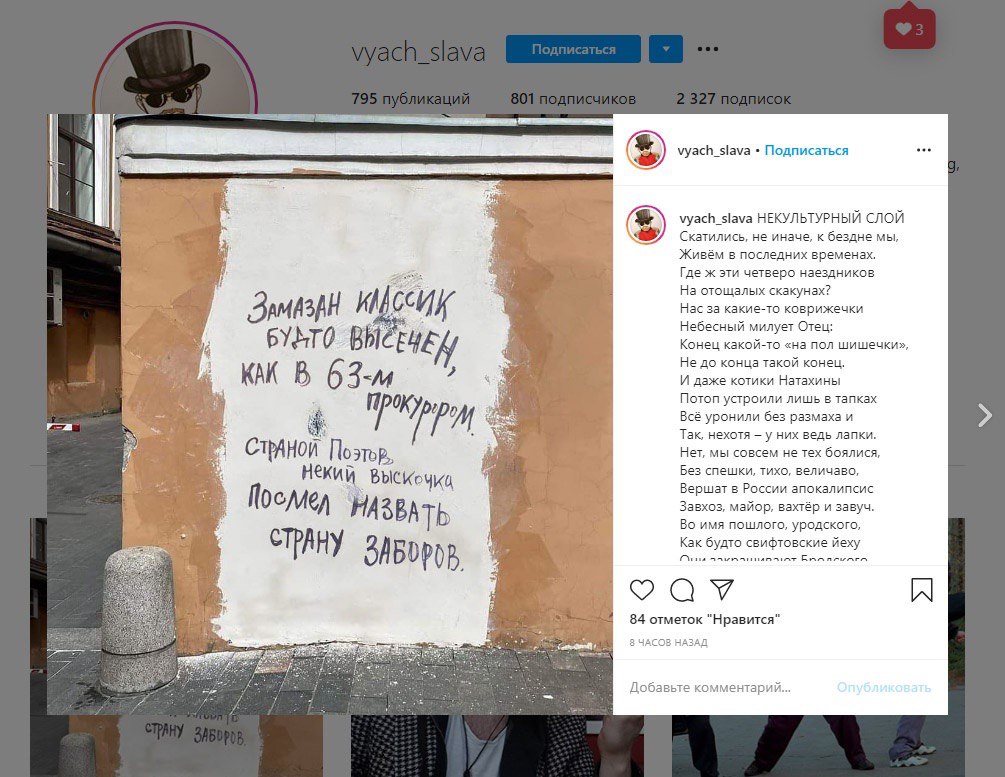 vyach_slava
Подписаться
3
795 публикаций
801 подписчиков
2 327 подписок
g,
ЗАМАЗАН КЛАССИК
БУДТО ВЫСЕЧЕН,
КАК В 63-м
ПРОКУРОРОМ.
СТРАНОЙ ПОЭТОВ
НЕКИЙ ВЫСКОЧКА
ПОСМЕЛ НАЗВАТЬ
СТРАНУ ЗАБОРОВ.
vyach_slava • Подписаться
vyach_slava НЕКУЛЬТУРНЫЙ СЛОЙ
Скатились, не иначе, к бездне мы,
Живём в последних временах.
Где ж эти четверо наездников
На отощалых скакунах?
Нас за какие-то коврижечки
Небесный милует Отец:
Конец какой-то «на пол шишечки»,
Не до конца такой конец.
И даже котики Натахины
Потоп устроили лишь в тапках
Всё уронили без размаха и
Так, нехотя – у них ведь лапки.
Нет, мы совсем не тех боялися,
Без спешки, тихо, величаво,
Вершат в России апокалипсис
Завхоз, майор, вахтёр и завуч.
Во имя пошлого, уродского,
Как будто свифтовские йеху
Они закрашивают Бродского
84 отметок "Нравится"
8 ЧАСОВ НАЗАД
Добавьте комментарий...
Опубликовать
СТРАНУ ЗАБОРОВ.